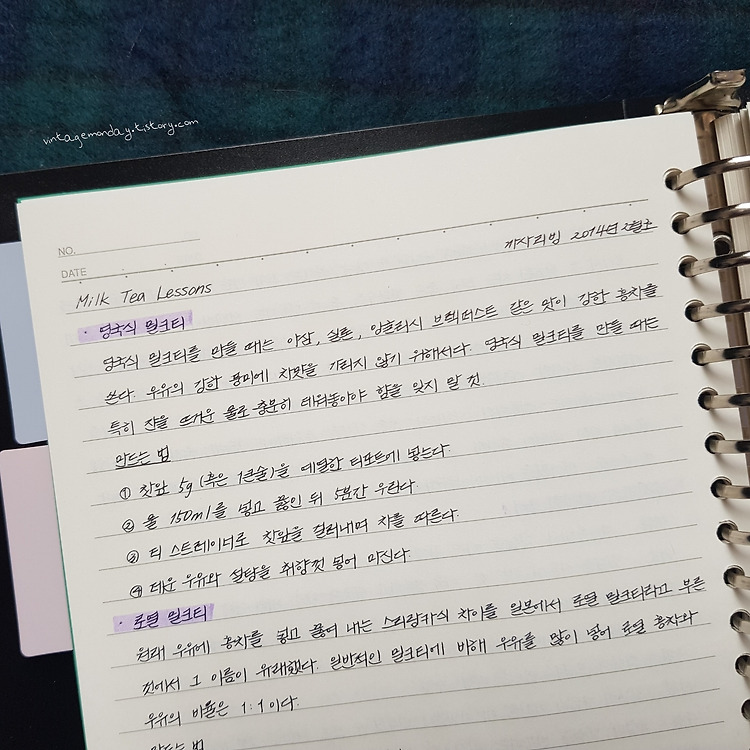 vintagemonday.tistory.com
NO.
DATE
까사리빙 2014년 2월호
Milk Tea Lessons
· 영국식 밀크티
영국식 밀크티를 만들 때는 아삼, 실론, 잉글리시 브렉퍼스트 같은 맛이 강한 홍차를
쓴다. 우유의 강한 풍미에 차맛을 가리지 않기 위해서다. 영국식 밀크티를 만들 때는
특히 잔을 뜨거운 물로 충분히 데워놓아야 함을 잊지 말 것.
만드는 법
① 찻잎 5g (혹은 1큰술)을 예열한 티포트에 넣는다.
② 물 150ml를 넣고 끓인 뒤 5분간 우린다.
③ 티 스트레이너로 찻잎을 걸러내며 차를 따른다.
④ 데운 우유와 설탕을 취향껏 넣어 마신다.
· 로열 밀크티
원래 우유에 홍차를 넣고 끓여 내는 스리랑카식 차이를 일본에서 로열 밀크티라고 부른
것에서 그 이름이 유래했다. 일반적인 밀크티에 비해 우유를 많이 넣어 로열 홍차와
우유의 비율은 1:1이다.
만드는 법